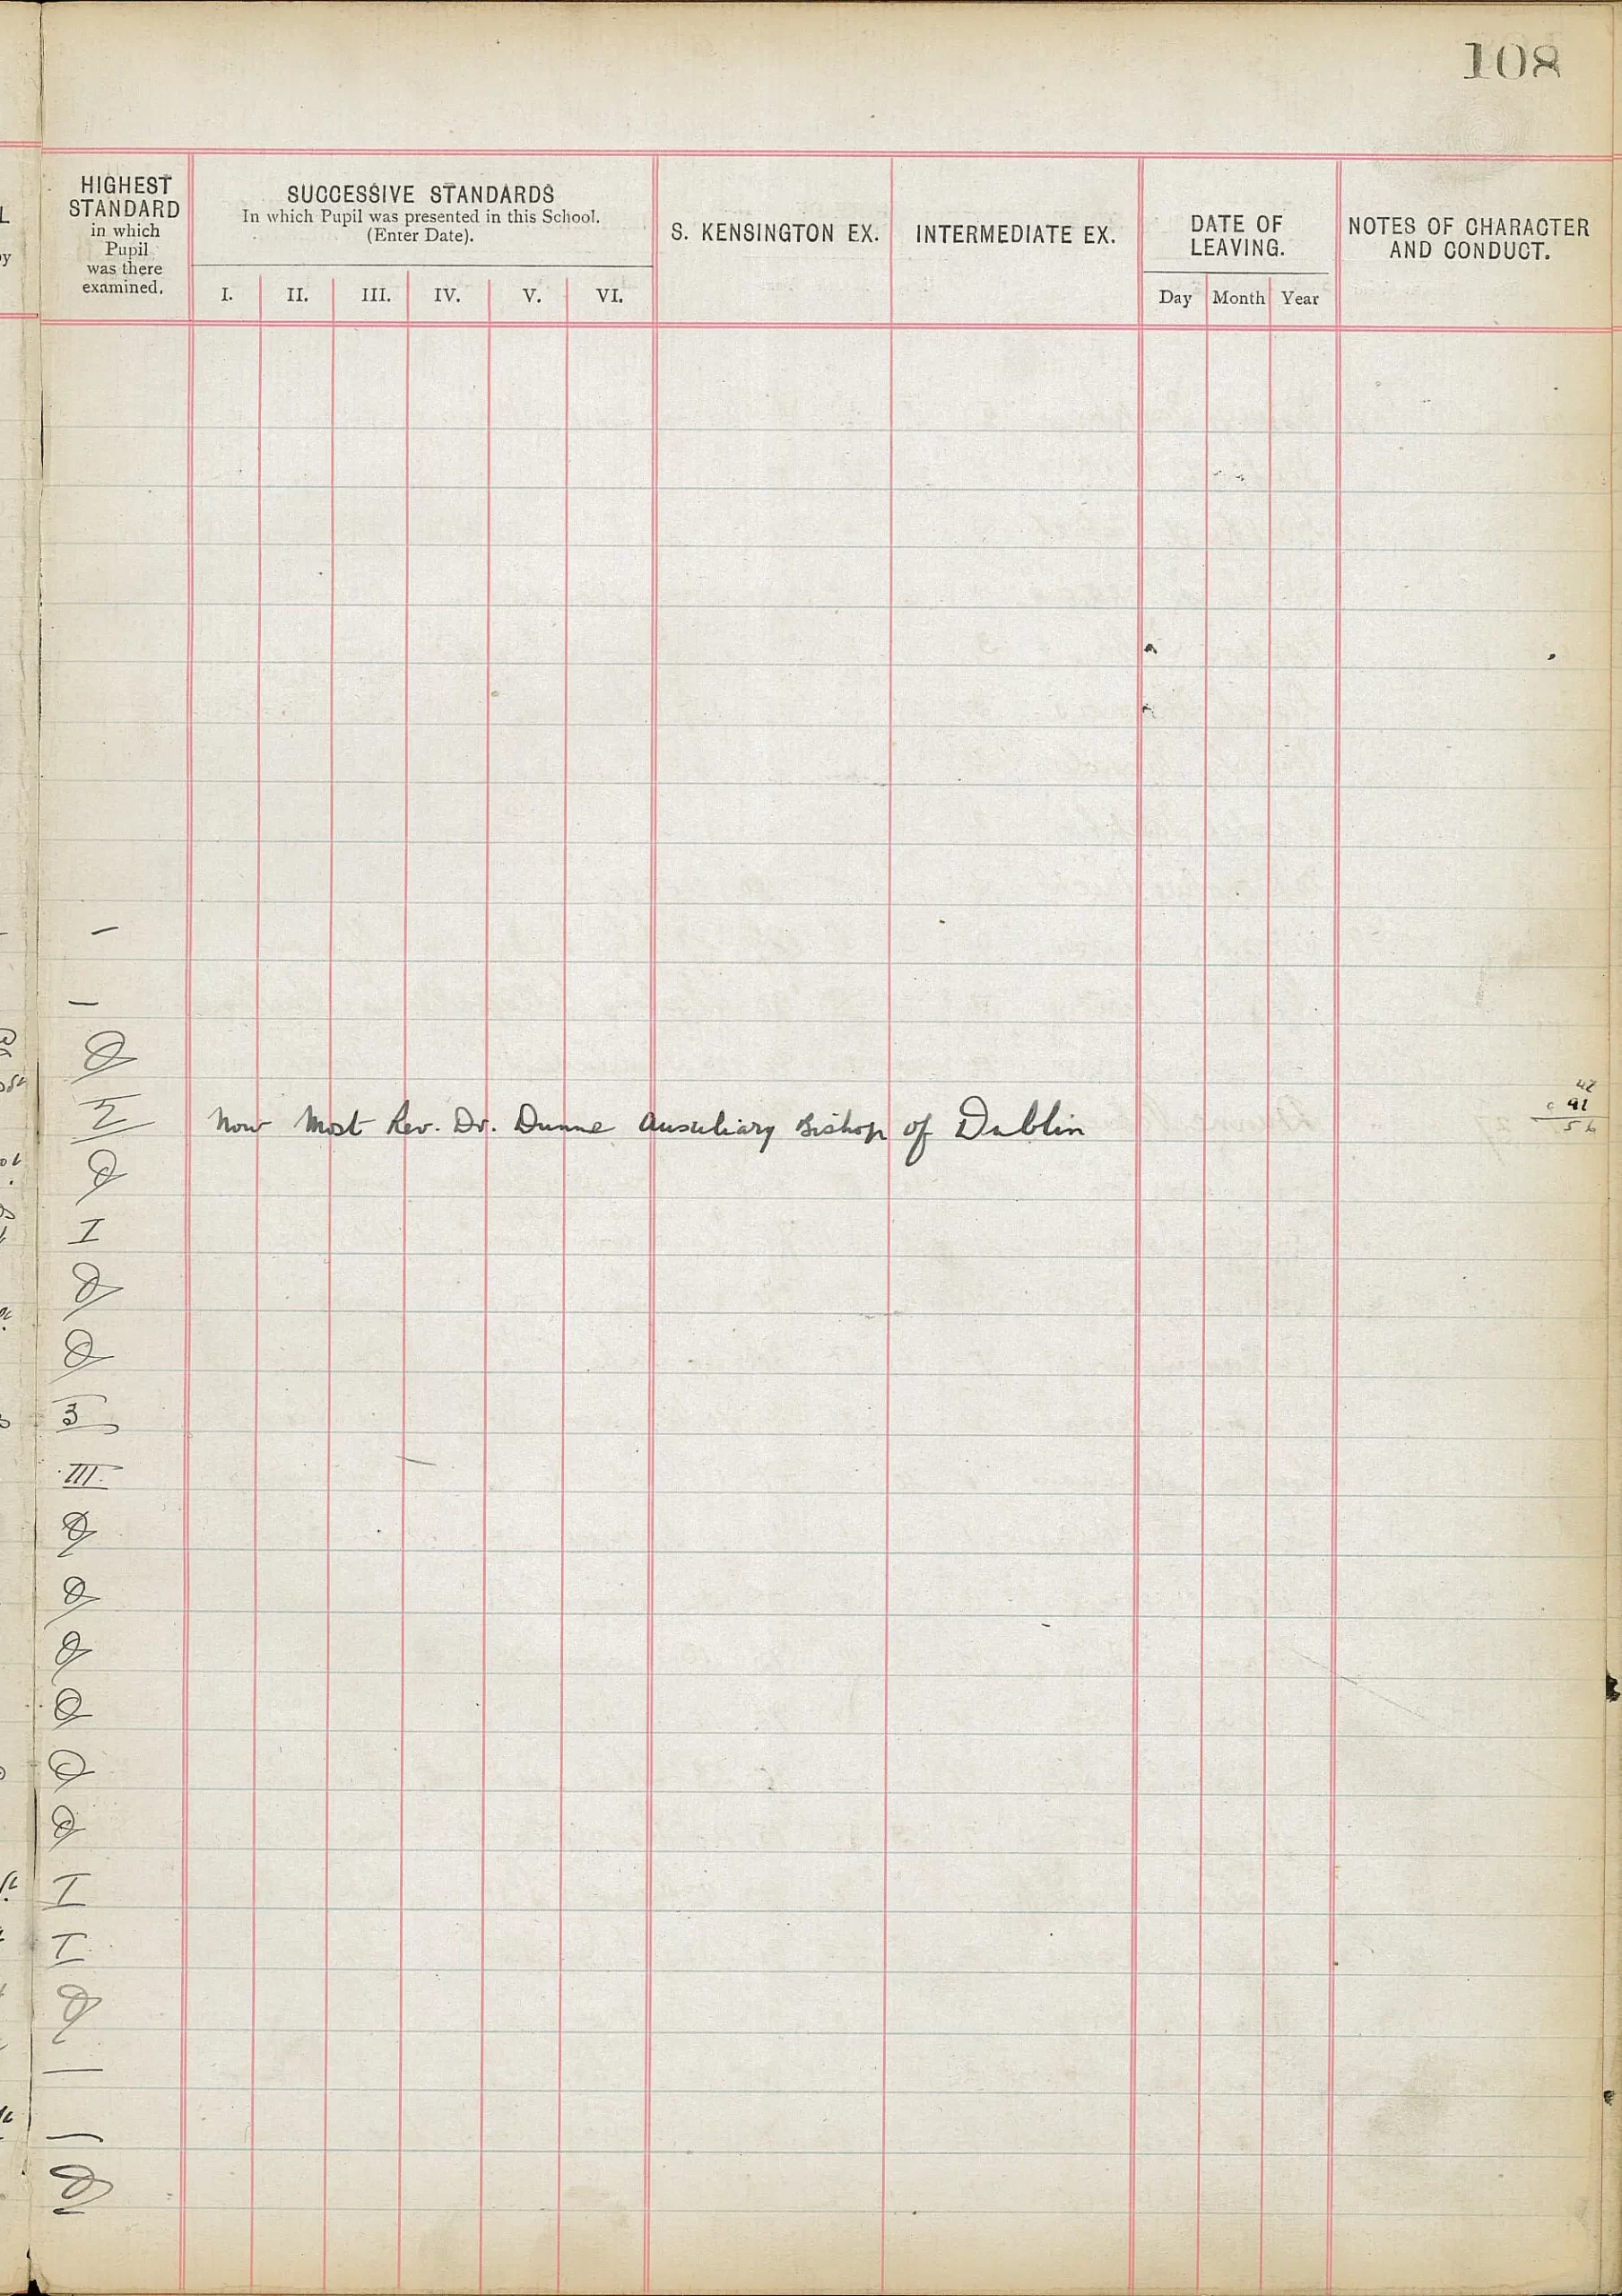 108
HIGHEST STANDARD in which Pupil was there examined.
SUCCESSIVE STANDARDS
In which Pupil was presented in this School.
(Enter Date).
I. II. III. IV. V. VI.
S. KENSINGTON EX.
INTERMEDIATE EX.
DATE OF LEAVING.
Day Month Year
NOTES OF CHARACTER AND CONDUCT.
Now Most Rev. Dr. Dunne Auxiliary Bishop of Dublin
I
3
III.
I
I